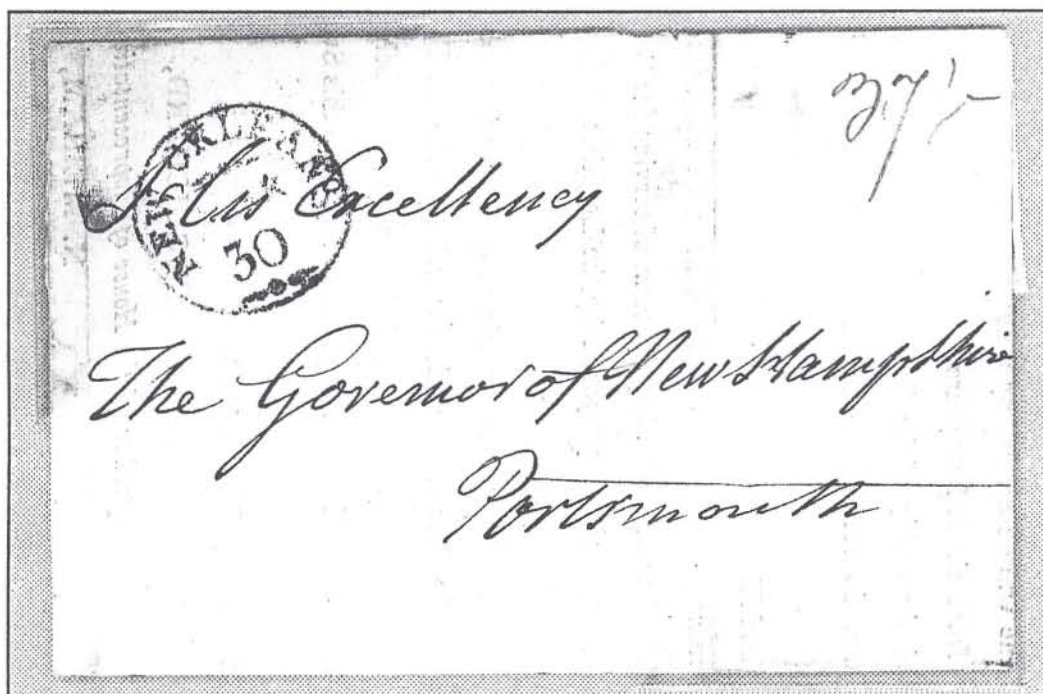 37 1/2
NEW ORLEANS
30
His Excellency
The Governor of New Hampshire
Portsmouth